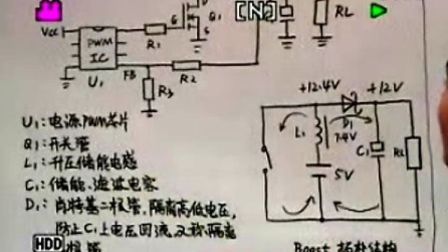 [N]
RL
Vcc
PWM
IC
G
S
Q₁
R₁
U₁
FB
R₂
R₃
+12.4V
+12V
L₁
D₁
7.4V
C₁
RL
5V
U₁:电源PWM芯片
Q₁:开关管
L₁:升压储能电感
C₁:储能、滤波电容
D₁:肖特基二极管,隔离高低电压,
防止C₁上电压回流,又称隔离
HDD
极管
Boost 拓扑结构